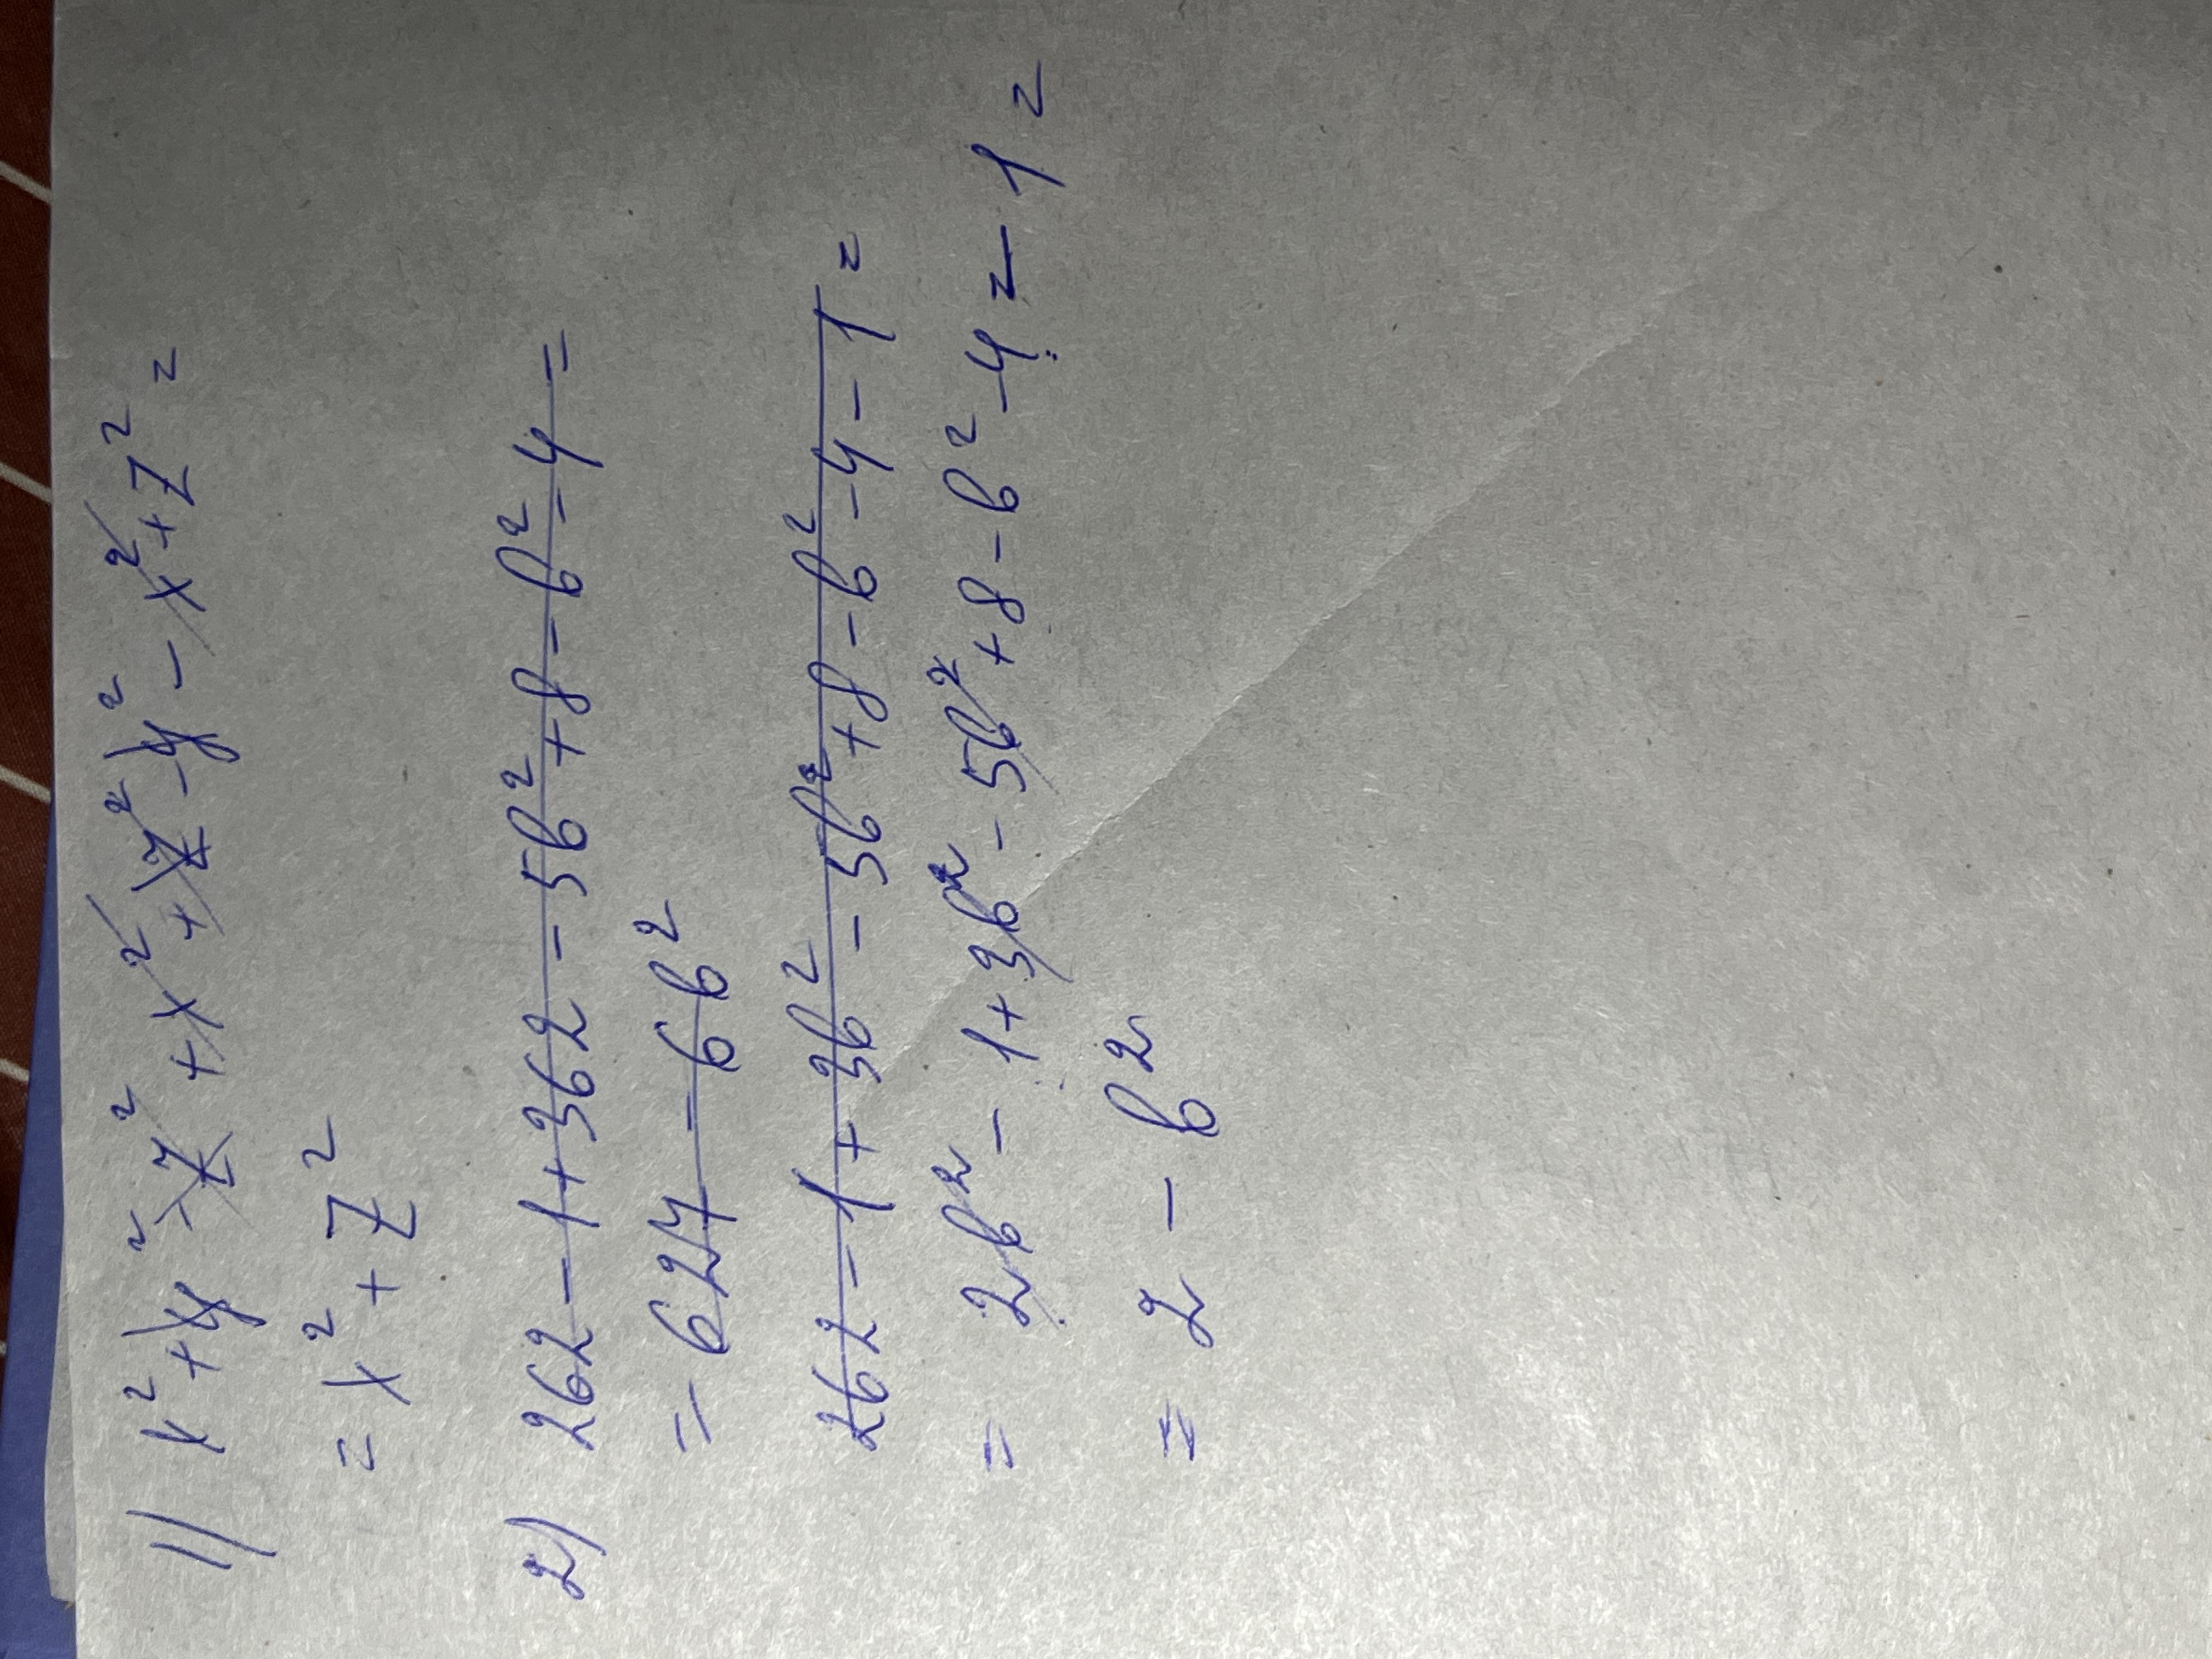 1) x² + y² - z² + x² + z² - y² - x² + z² =
= x² + z²
2) 262 - 1 + 362 - 5b² + 8 - b² - 4 =
= 6214 - 6b²
262 - 1 + 3b² - 5b² + 8 - b² - 4 - 1 =
= 2b² - 1 + 3b² - 5b² + 8 - b² - 4 = - 1 =
= 2 - b²